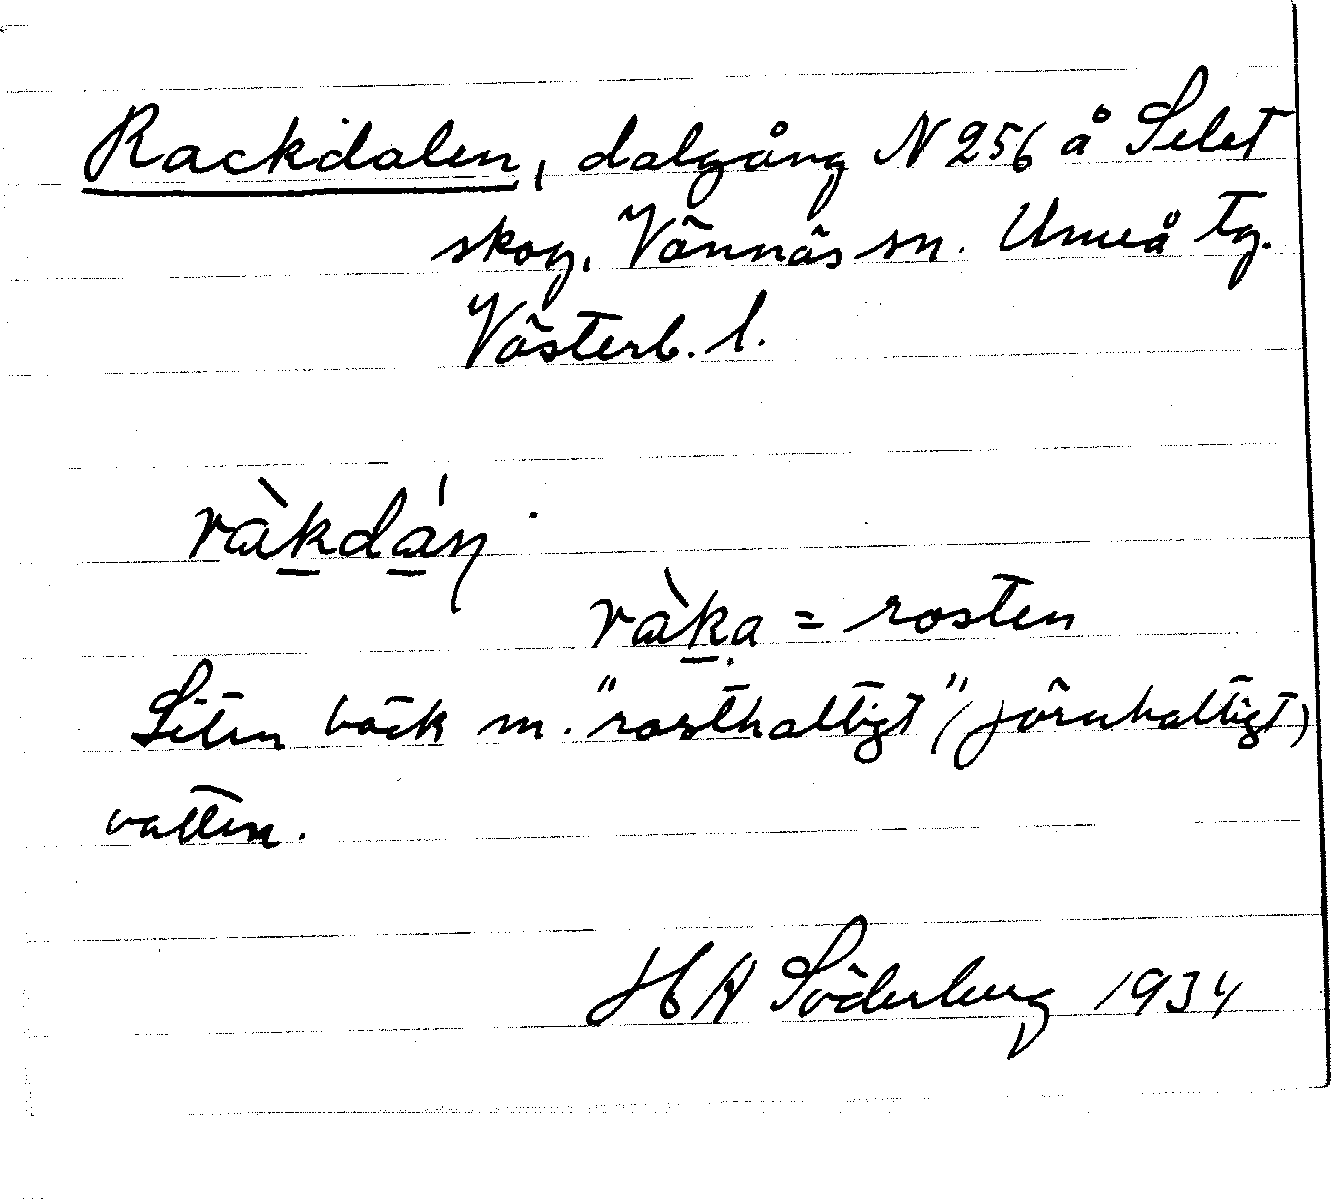 Rackdalen, dalgång N 256 å Selet
skog, Vännäs sn. Umeå tg.
Västerb. l.
ràk̲dá̲n
ràk̲a = rosten
Liten bäck m. "rosthaltigt" (järnhaltigt)
vatten.
H A Söderberg 1934